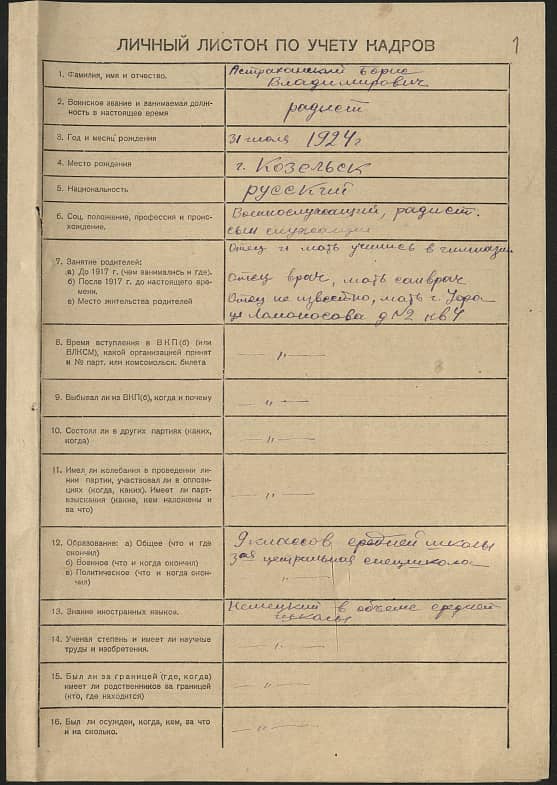 1
ЛИЧНЫЙ ЛИСТОК ПО УЧЕТУ КАДРОВ
1. Фамилия, имя и отчество.
Астраханский Борис
Владимирович
2. Воинское звание и занимаемая долж-
ность в настоящее время
радист
3. Год и месяц рождения
31 июля 1924 г
4. Место рождения
г. Козельск
5. Национальность
русский
6. Соц. положение, профессия и проис-
хождение.
Военнослужащий, радист.
сын служащих
7. Занятие родителей:
а) До 1917 г. (чем занимались и где).
б) После 1917 г. до настоящего вре-
мени.
в) Место жительства родителей
Отец и мать учились в гимназии
Отец врач, мать санврач
Отец не известно, мать г. Уфа
ул Ломоносова д №2 кв 4
8. Время вступления в ВКП(б) (или
ВЛКСМ), какой организацией принят
и № парт. или комсомольск. билета
— „ —
9. Выбывал ли из ВКП(б), когда и почему
— „ —
10. Состоял ли в других партиях (каких,
когда)
— „ —
11. Имел ли колебания в проведении ли-
нии партии, участвовал ли в оппози-
циях (когда, каких). Имеет ли парт-
взыскания (какие, кем наложены и
за что)
— „ —
12. Образование: а) Общее (что и где
окончил)
б) Военное (что и когда окончил)
в) Политическое (что и когда окон-
чил)
9 классов средней школы
3ая центральная спецшкола
— „ —
13. Знание иностранных языков.
Немецкий в объёме средней
школы
14. Ученая степень и имеет ли научные
труды и изобретения.
— „ —
15. Был ли за границей (где, когда)
имеет ли родственников за границей
(кто, где находится)
— „ —
16. Был ли осужден, когда, кем, за что
и на сколько.
— „ —